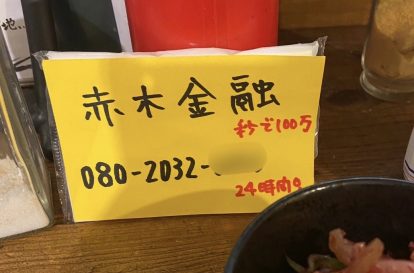 地..
赤木金融
秒で100万
080-2032-
24時間